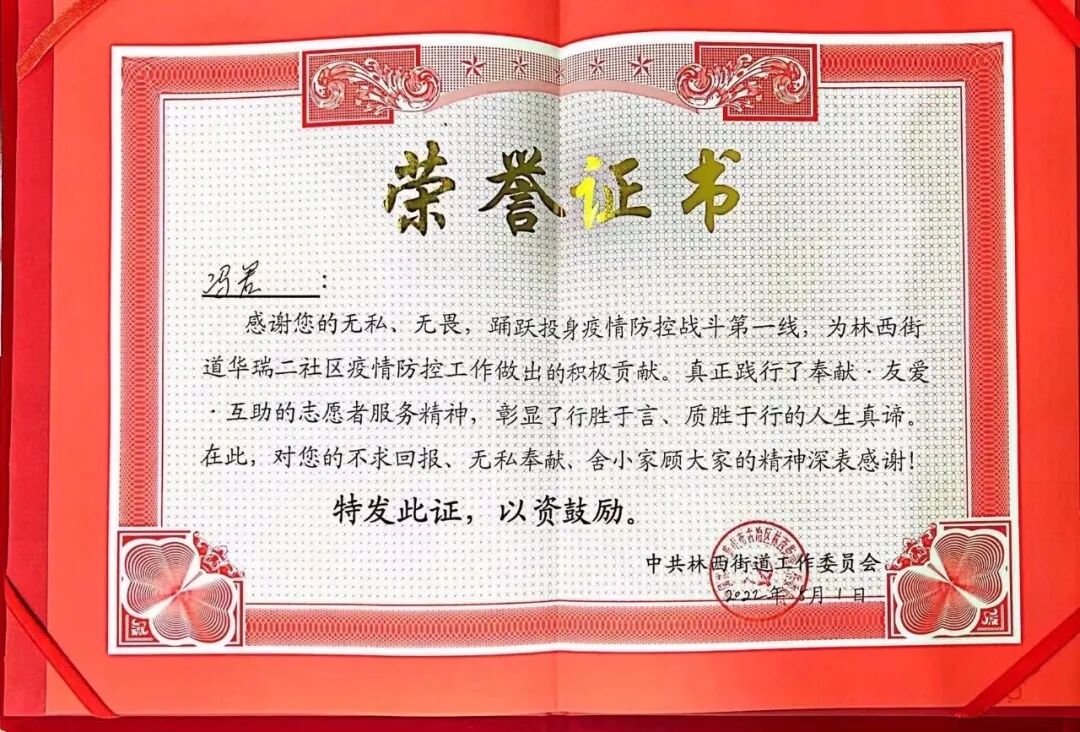 荣誉证书
冯君:
感谢您的无私、无畏,踊跃投身疫情防控战斗第一线,为林西街
道华瑞二社区疫情防控工作做出的积极贡献。真正践行了奉献·友爱
·互助的志愿者服务精神,彰显了行胜于言、质胜于行的人生真谛。
在此,对您的不求回报、无私奉献、舍小家顾大家的精神深表感谢!
特发此证,以资鼓励。
中共林西街道工作委员会
2022年5月1日